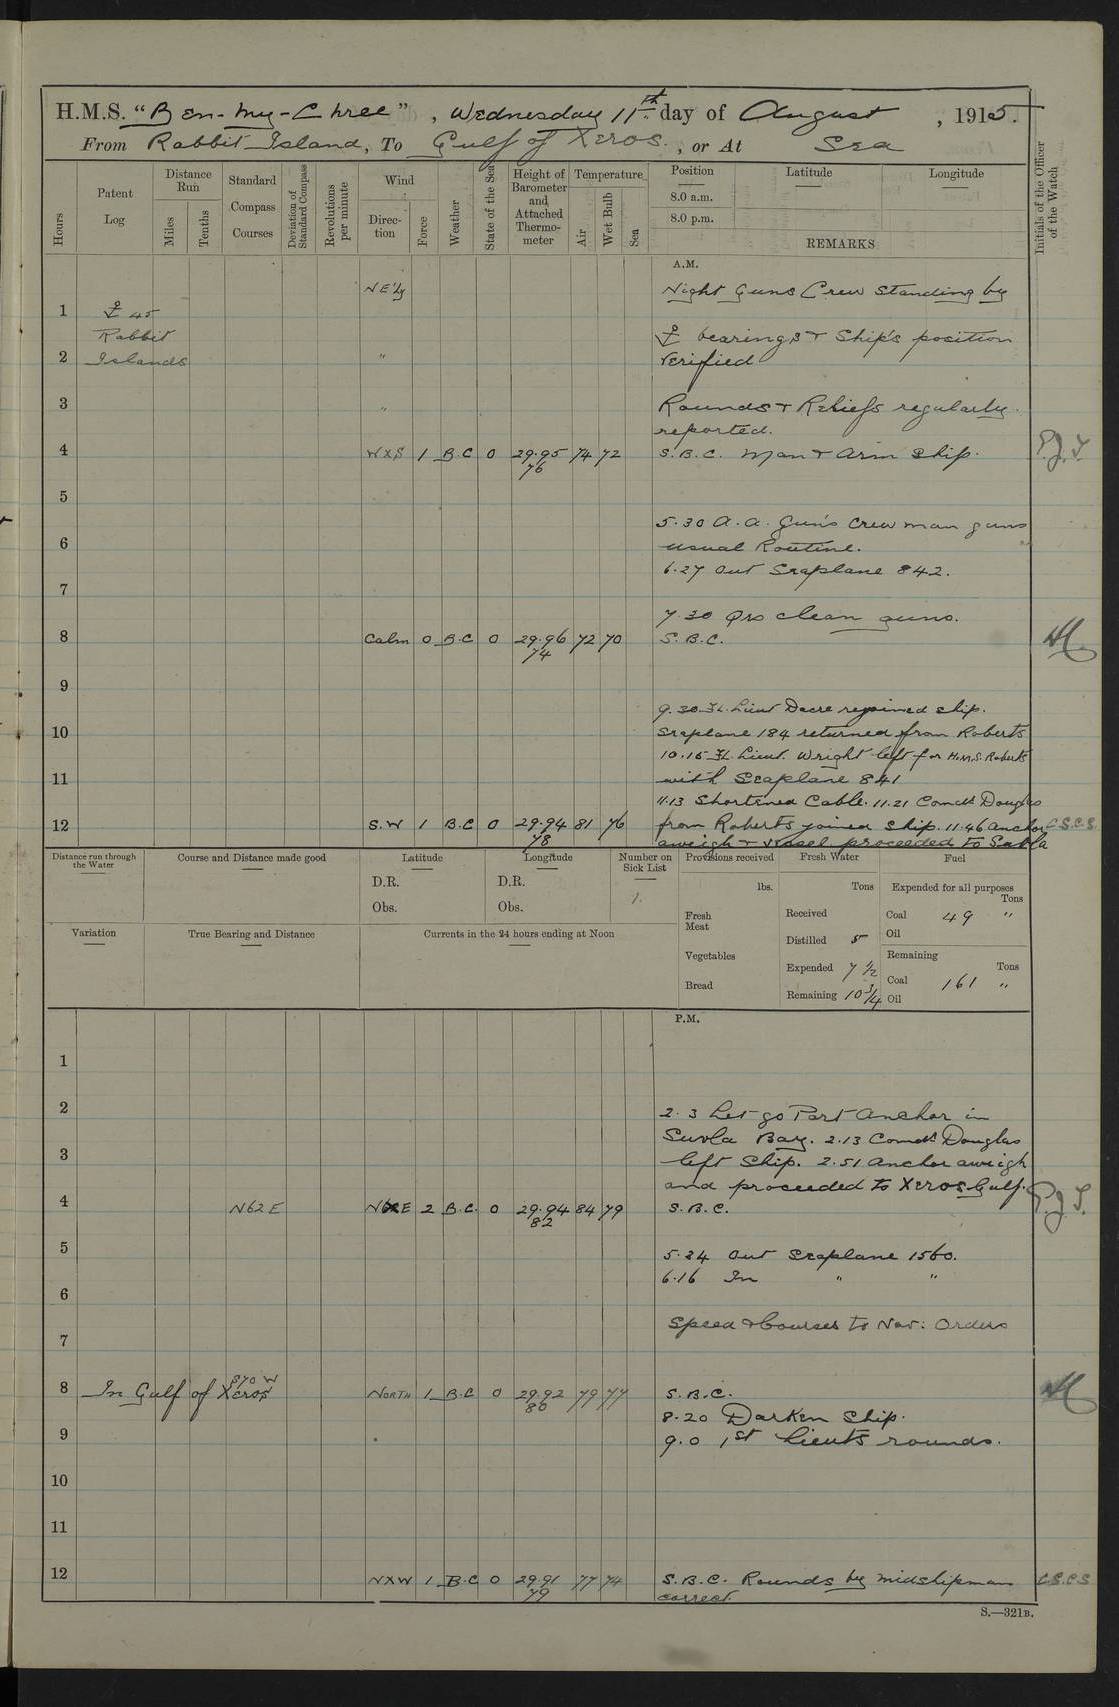 H.M.S. "Ben-my-Chree", Wednesday 11th day of August, 1915.
From Rabbit Island, To Gulf of Xeros., or At Sea
Hours
Patent Log
Distance Run
Miles
Tenths
Standard Compass Courses
Deviation of Standard Compass
Revolutions per minute
Wind
Direction
Force
Weather
State of the Sea
Height of Barometer and Attached Thermometer
Temperature
Air
Wet Bulb
Sea
Position
8.0 a.m.
8.0 p.m.
Latitude
Longitude
REMARKS
Initials of the Officer of the Watch
A.M.
NE'ly Night Guns Crew Standing by
1 45
Rabbit bearings + Ship's position
2 Islands " verified
3 " Rounds + Reliefs regularly
reported.
4 WXS 1 B.C 0 29.95 74 72 S.B.C. Man + Arm Ship.
76
5
5.30 A.A. Guns Crew man guns
6 usual Routine.
6.27 Out Seaplane 842.
7
7.30 Qrs clean guns.
8 Calm 0 B.C 0 29.96 72 70 S.B.C.
74
9
9.30 Fl. Lieut Dacre rejoined ship.
10 Seaplane 184 returned from Roberts
10.15 Fl. Lieut. Wright left for H.M.S. Roberts
11 with Seaplane 841
11.13 Shortened Cable. 11.21 Comdr Douglas
12 S.W 1 B.C 0 29.94 81 76 from Roberts joined ship. 11.46 Anchor C.S.C.S.
78 aweigh + vessel proceeded to Suvla
Distance run through the Water
Course and Distance made good
Latitude
D.R.
Obs.
Longitude
D.R.
Obs.
Number on Sick List
1.
Provisions received
lbs.
Fresh Meat
Vegetables
Bread
Fresh Water
Tons
Received
Distilled 5
Expended 7 1/2
Remaining 10 3/4
Fuel
Expended for all purposes
Tons
Coal 49 "
Oil
Remaining
Tons
Coal 161 "
Oil
Variation
True Bearing and Distance
Currents in the 24 hours ending at Noon
P.M.
1
2 2.3 Let go Port Anchor in
Suvla Bay. 2.13 Comdr Douglas
3 left Ship. 2.51 Anchor aweigh
and proceeded to Xeros Gulf.
4 N62E NXE 2 B.C. 0 29.94 84 79 S.B.C.
82
5 5.24 Out Seaplane 1560.
6.16 In " "
6
7 Speed + Courses to Nav: Orders
S70W
8 In Gulf of Xeros North 1 B.C 0 29.92 79 77 S.B.C.
80 8.20 Darken Ship.
9 9.0 1st Lieuts rounds.
10
11
12 NXW 1 B.C 0 29.91 77 74 S.B.C. Rounds by midshipman C.S.C.S
79 correct.
S.—321B.